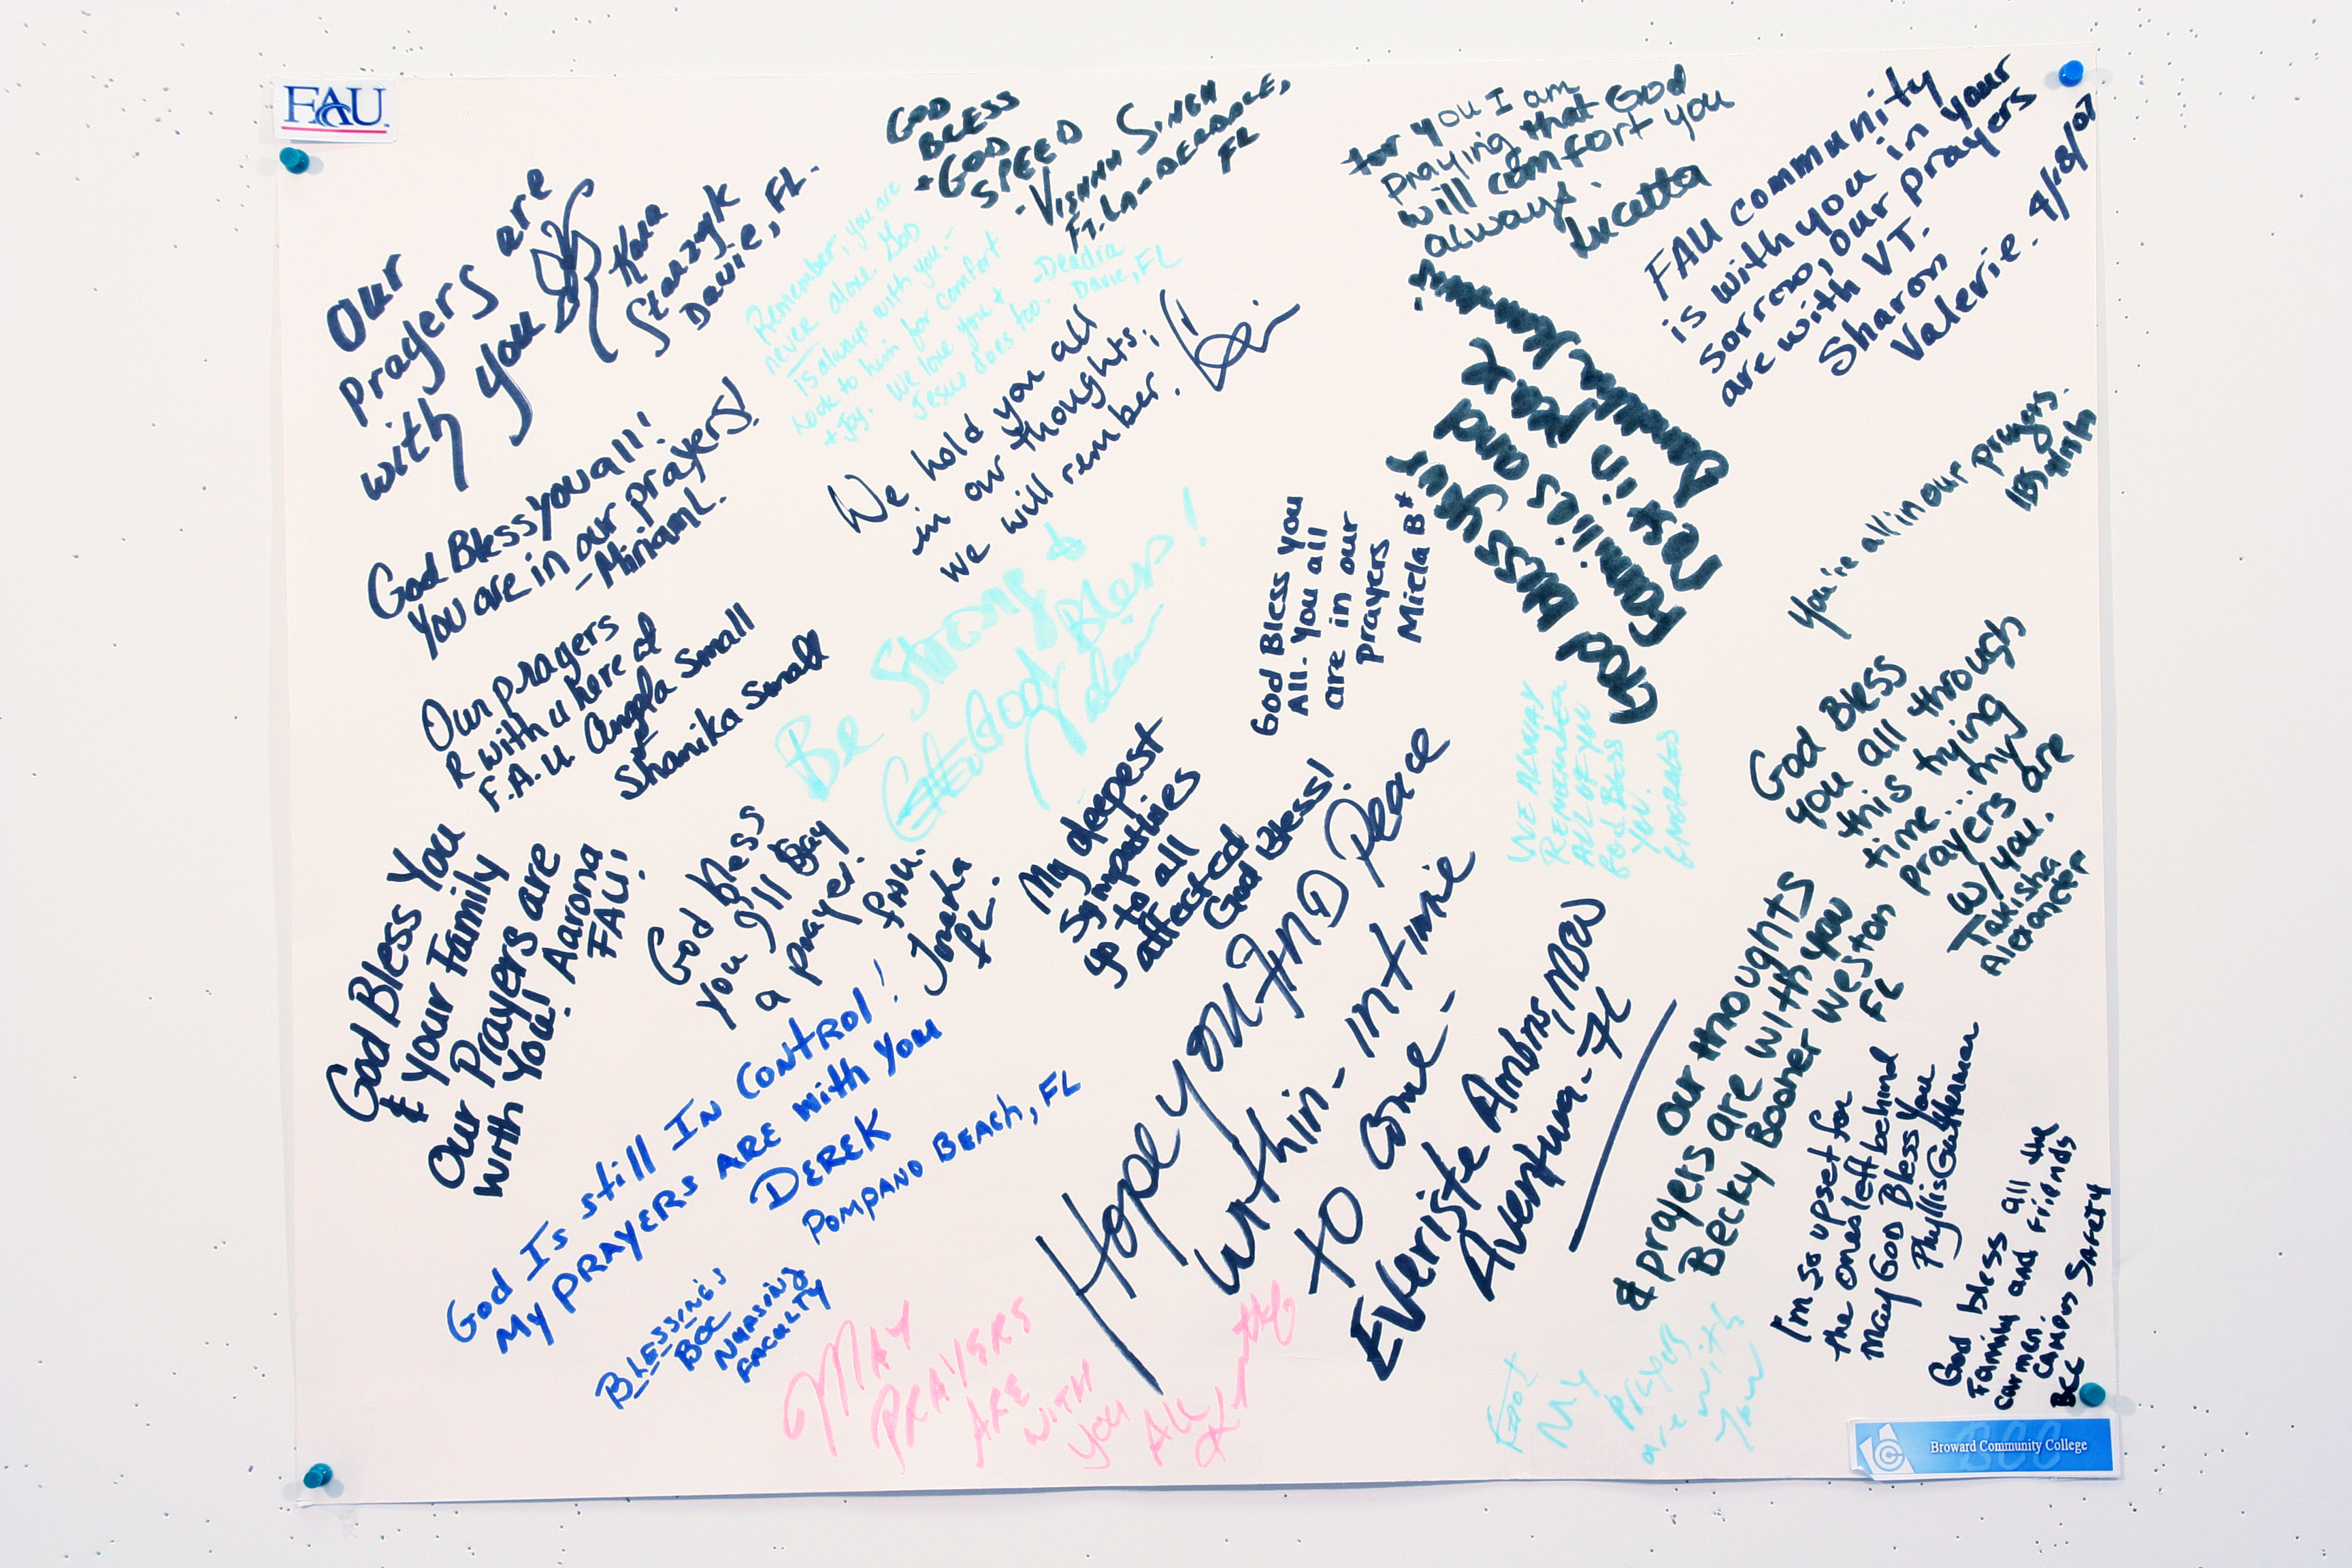 FAU
Our
prayers are
with you
Kara
Starzyk
Davie, FL.
GOD
BLESS
+ GOD
SPEED
- VISHNU SINGH
FT. LA-DERDALE,
FL
Remember, you are
never alone. God
is always with you.-
Look to him for comfort
+ Joy. We love you +
Jesus does too.
-Deadra
Davie, FL
for you I am
praying that God
will comfort you
always.
Lucetta
FAU community
is with you in your
sorrow, our prayers
are with VT.
Sharon
Valerie. 4/18/07
God Bless you all!
You are in our prayers!
- Miriam L.
We hold you all
in our thoughts;
we will remember.
God bless your
families and
rest in peace
You're all in our prayers.
Our prayers
R with u here at
F.A.U Angela Small
Shanika Small
Be Strong &
God Bless!
God Bless you
All. You all
are in our
Prayers
Micla B*
WE ALWAY
REMEMBER
ALL OF YOU
God Bless
YOU.
God Bless
you all through
this trying
time... my
prayers are
w/you.
Takisha
Alexander
God Bless You
& Your Family
Our Prayers are
with You!
Aarona
FAU!
God bless
you I'll Say
a prayer.
FAU.
FL.
My deepest
sympathies
go to all
affected
God Bless!
Hope you FIND Peace
within- in time
to come-
EVeriste
Aventura- FL
Our thoughts
& prayers are with you
Becky Booher Weston
FL
God Is still IN CONTROL!
My PRAYERS ARE with You
DEREK
POMPANO BEACH, FL
BLESSING'S
BCC
NURSING
FACULTY
MAY
PRAYERS
ARE
WITH
YOU
ALL
I'm so upset for
the ones left behind
May God Bless You
Phyllis Gutterman
God bless all the
Family and friends
carmen.
campus SAFETY
BCC
My
prayers
are with
You
Broward Community College
BCC